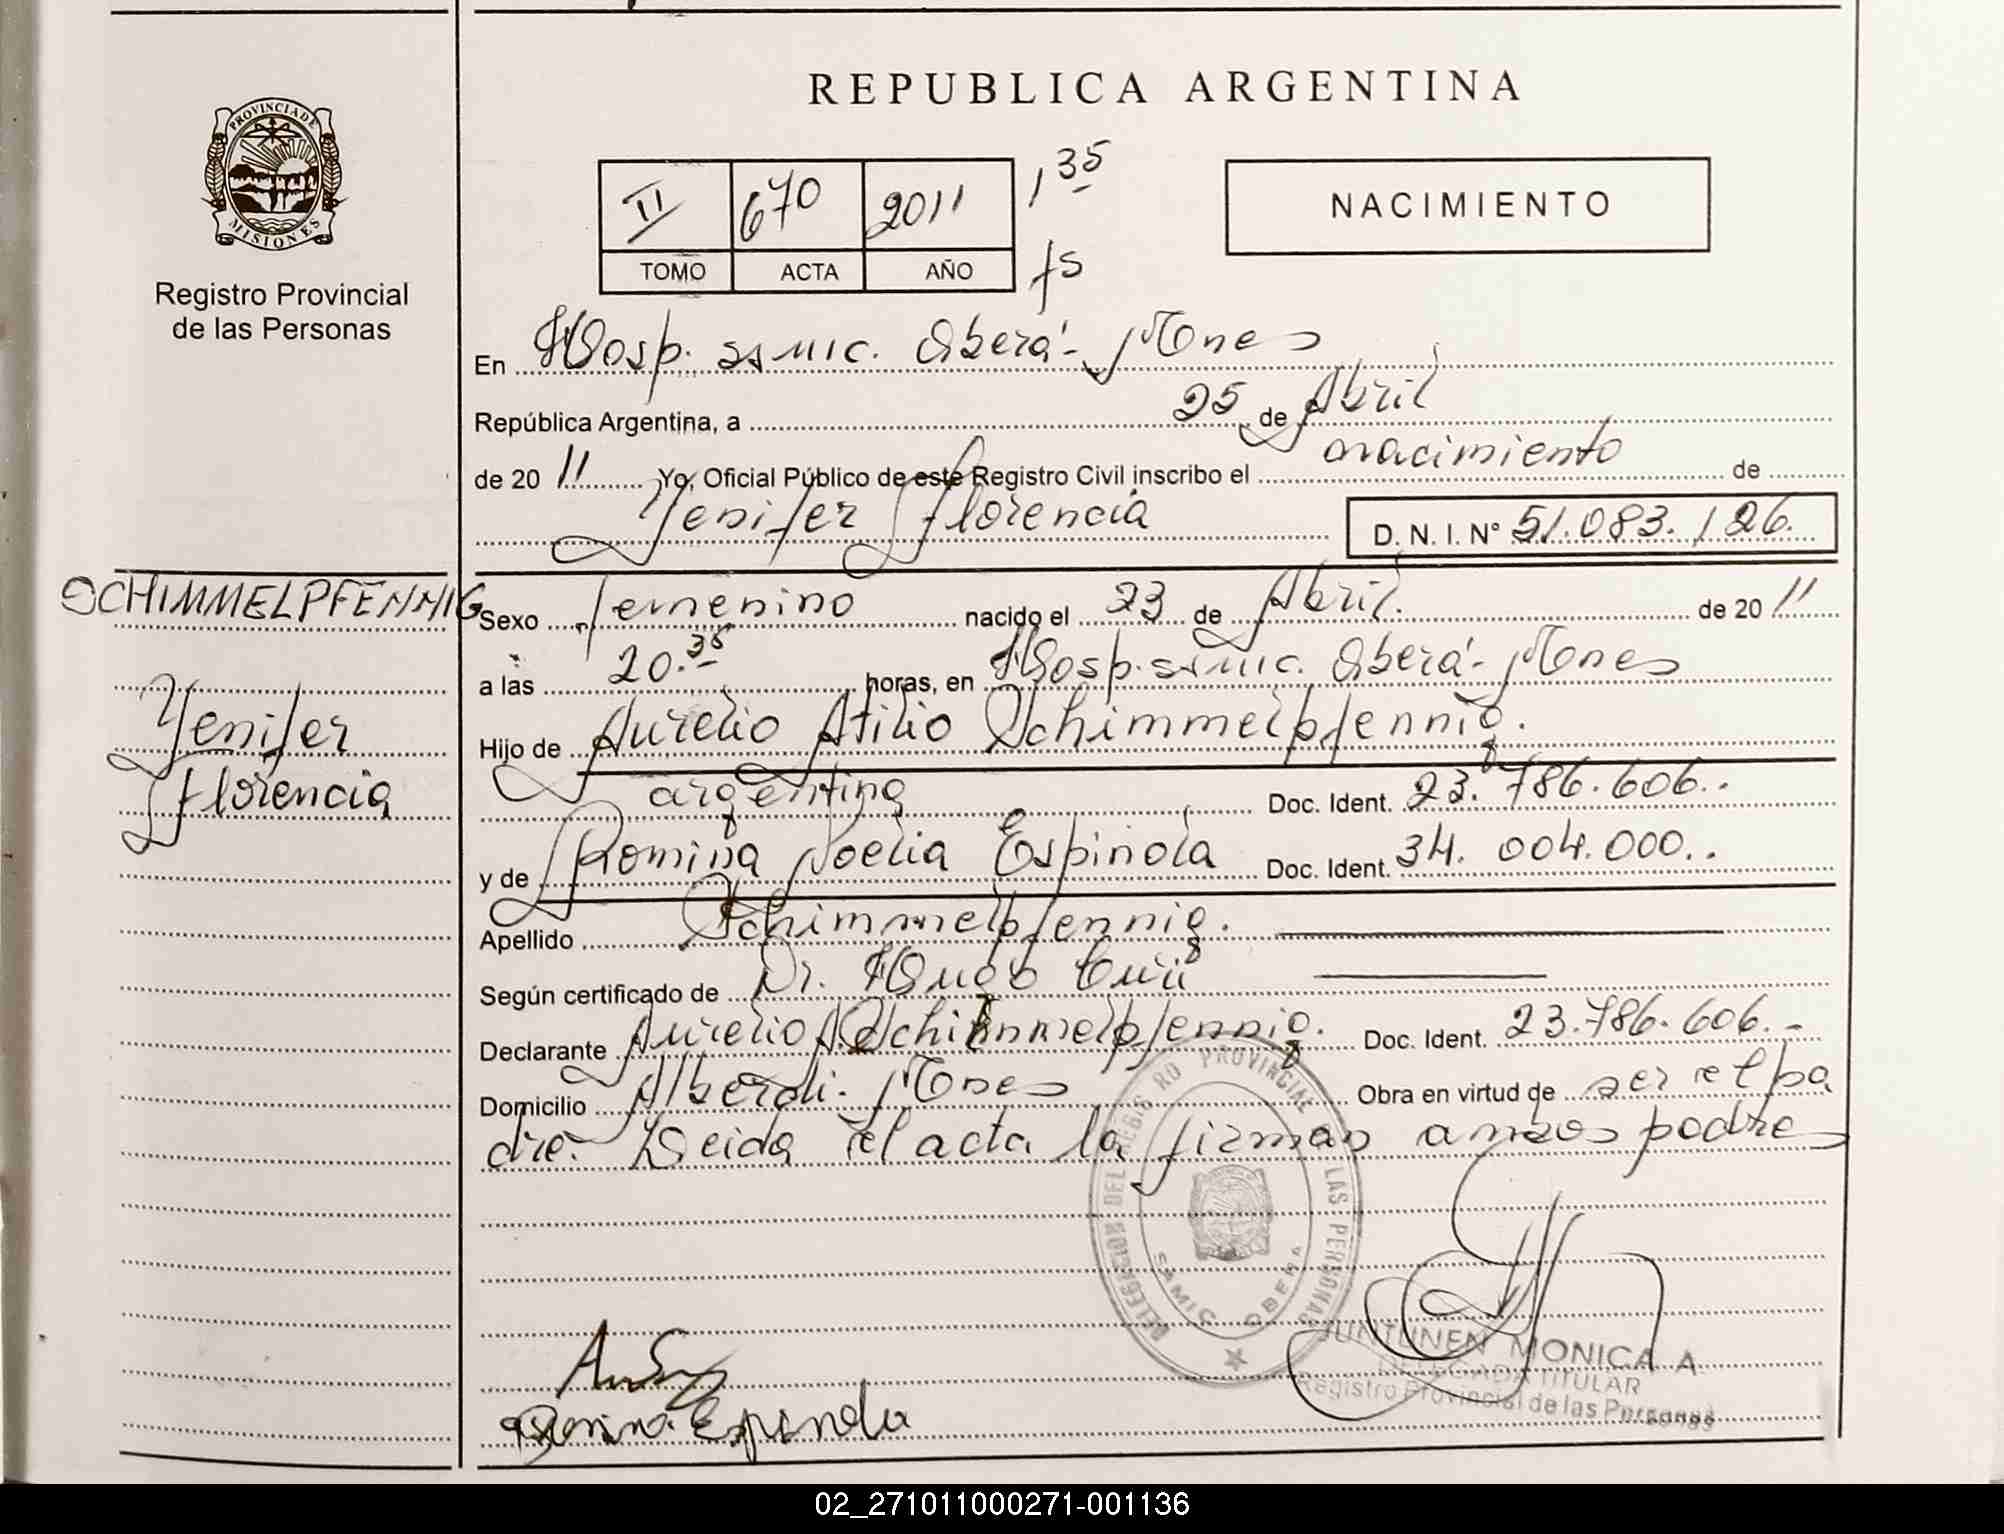 REPUBLICA ARGENTINA
PROVINCIA DE
MISIONES
Registro Provincial
de las Personas
II 670 2011 1 35
TOMO ACTA AÑO fs
NACIMIENTO
En Hosp. SAMIC. Oberá - Mnes
República Argentina, a 25 de Abril
de 20 11 Yo, Oficial Público de este Registro Civil inscribo el nacimiento de
Yenifer Florencia D. N. I. N° 51.083.126.
SCHIMMELPFENNIG
Yenifer
Florencia
Sexo femenino nacido el 23 de Abril. de 20 11
a las 20.35 horas, en Hosp. SAMIC. Oberá - Mnes
Hijo de Aurelio Atilio Schimmelpfennig.
argentina Doc. Ident. 23.786.606..
y de Romina Noelia Espinola Doc. Ident. 34. 004.000..
Apellido Schimmelpfennig.
Según certificado de Dr. Hugo
Declarante Aurelio A. Schimmelpfennig. Doc. Ident. 23.786.606.-
Domicilio Alberdi. Mnes Obra en virtud de ser el pa
dre. Leida el acta la firman ambos padres
DELEGACION DEL REGISTRO PROVINCIAL LAS PERSONAS
SAMIC OBERA
Romina Espinola
JUNTUNEN MONICA A.
DELEGADA TITULAR
Registro Provincial de las Personas
02_271011000271-001136